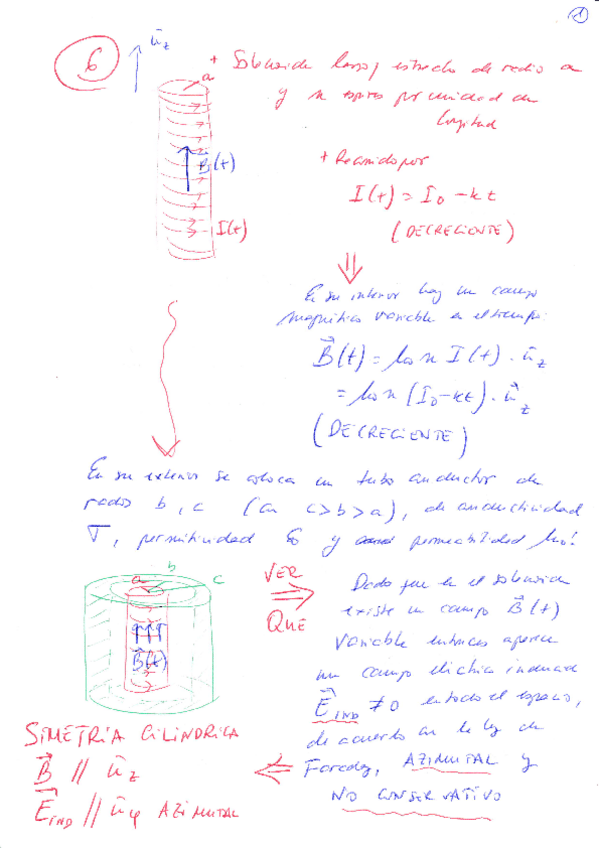 1
6
u⃗z
+ Solenoide largo y estrecho de radio a
y n espiras por unidad de
longitud
a
B⃗(t)
I(t)
+ Recorrido por
I(t) = I₀ - kt
(DECRECIENTE)
⇓
En su interior hay un campo
magnético variable en el tiempo
B⃗(t) = μ₀ n I(t) · u⃗z
= μ₀ n (I₀ - kt) · u⃗z
(DECRECIENTE)
En su exterior se coloca un tubo conductor de
radios b, c (con c>b>a), de conductividad
σ, permitividad ε₀ y permeabilidad μ₀!
a b c
B⃗(t)
VER
⇒
QUE
Dado que en el solenoide
existe un campo B⃗(t)
variable entonces aparece
un campo eléctrico inducido
E⃗IND ≠ 0 en todo el espacio,
de acuerdo con la ley de
Faraday, AZIMUTAL y
NO CONSERVATIVO
⇐
SIMETRIA CILINDRICA
B⃗ // u⃗z
E⃗IND // u⃗φ AZIMUTAL